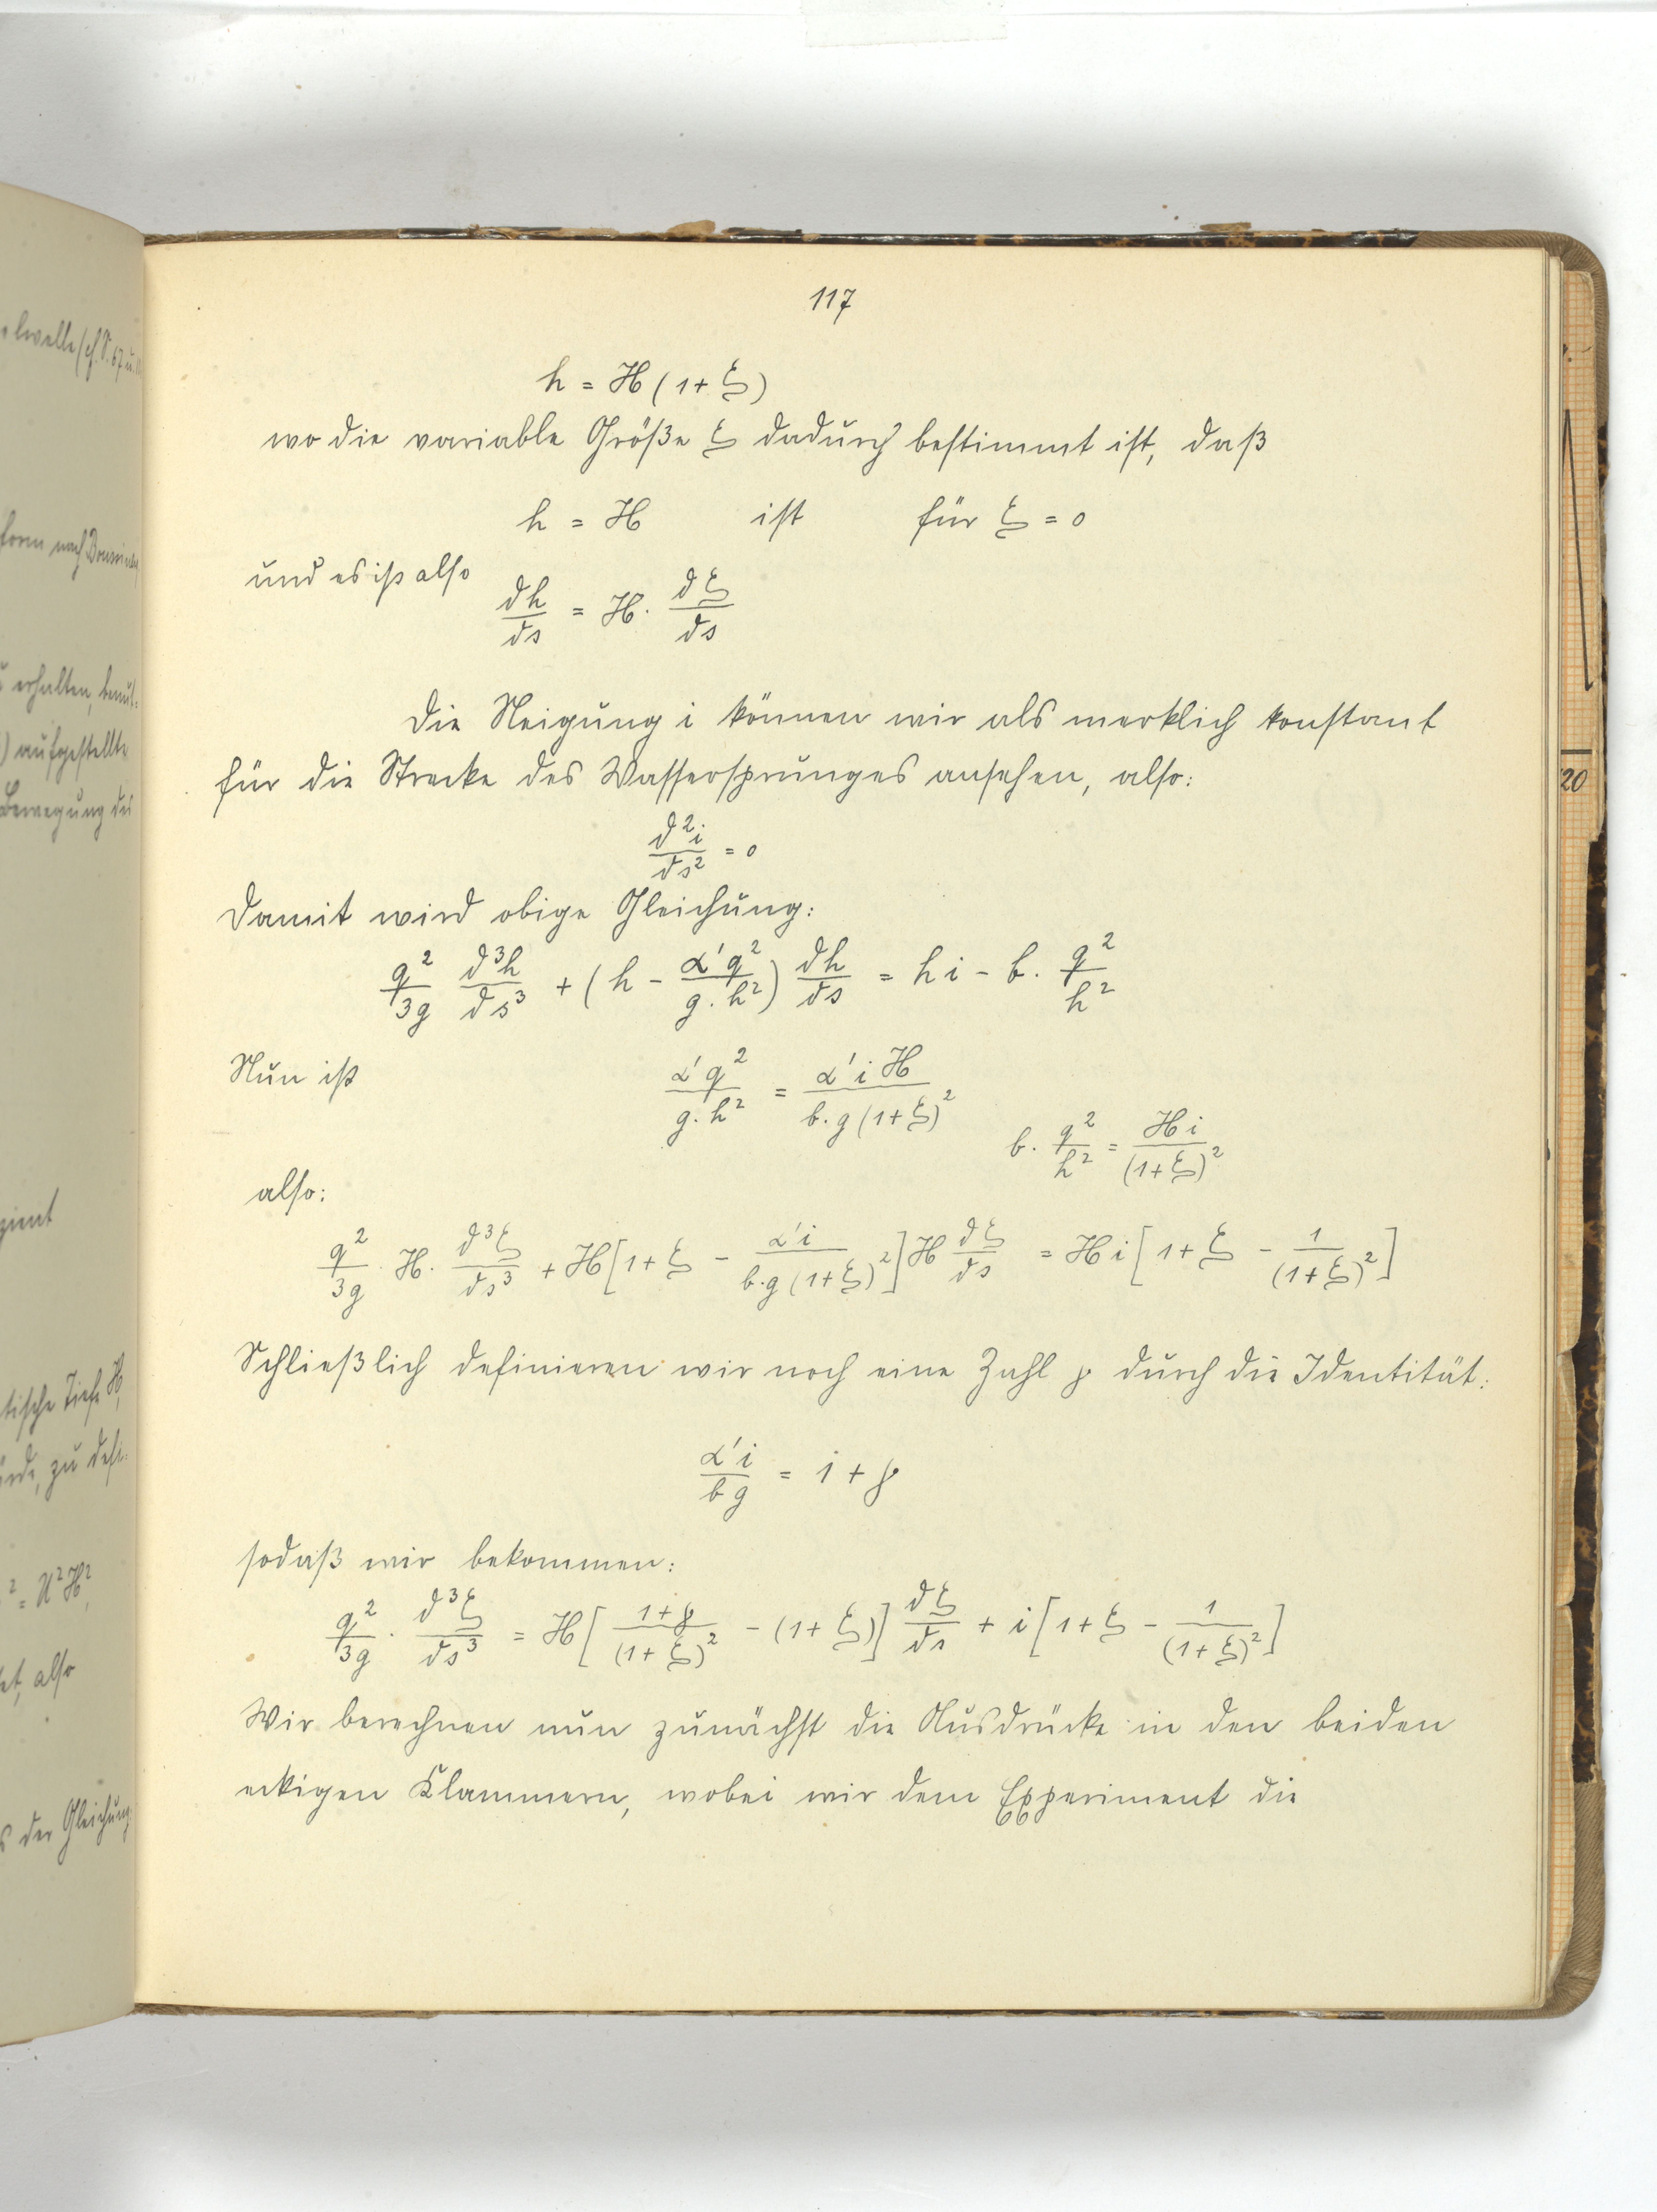 117
h = H (1 + ξ)
wo die variable Größe ξ dadurch bestimmt ist, daß
h = H ist für ξ = 0
und es ist also
dh/ds = H · dξ/ds
Die Neigung i können wir als merklich konstant
für die Strecke des Wassersprunges ansehen, also:
d²i/ds² = 0
Damit wird obige Gleichung:
q²/3g d³h/ds³ + (h - α'q²/g.h²) dh/ds = h i - b · q²/h²
Nun ist α'q²/g.h² = α' i H/b.g (1+ξ)²
b · q²/h² = H i/(1+ξ)²
also:
q²/3g · H · d³ξ/ds³ + H [1+ξ - α'i/b.g (1+ξ)²] H dξ/ds = H i [1+ξ - 1/(1+ξ)²]
Schließlich definieren wir noch eine Zahl γ durch die Identität:
α'i/b g = 1 + γ
sodaß wir bekommen:
q²/3g · d³ξ/ds³ = H [1+γ/(1+ξ)² - (1+ξ)] dξ/ds + i [1+ξ - 1/(1+ξ)²]
Wir berechnen nun zunächst die Ausdrücke in den beiden
eckigen Klammern, wobei wir dem Experiment die
20
erhalten,
) aufgestellte
Bewegung des
tische Tiefe H,
zu defi-
² = U²H²,
also
s der Gleichung